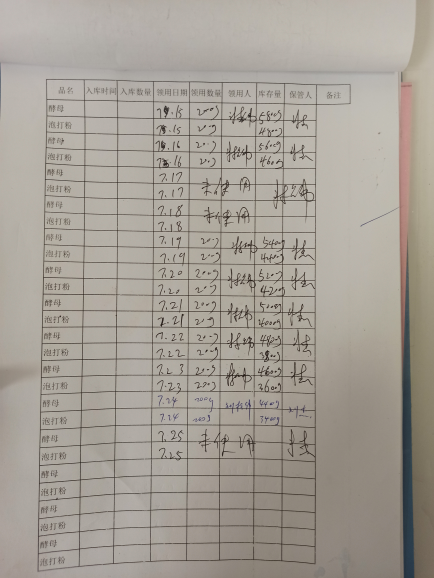 品名 入库时间 入库数量 领用日期 领用数量 领用人 库存量 保管人 备注
酵母 7.15 200g 5800g
泡打粉 7.15 200g 4800g
酵母 7.16 200g 5600g
泡打粉 7.16 200g 4600g
酵母 7.17 未使用
泡打粉 7.17
酵母 7.18 未使用
泡打粉 7.18
酵母 7.19 200g 5400g
泡打粉 7.19 200g 4400g
酵母 7.20 200g 5200g
泡打粉 7.20 200g 4200g
酵母 7.21 200g 5000g
泡打粉 7.21 200g 4000g
酵母 7.22 200g 4800g
泡打粉 7.22 200g 3800g
酵母 7.23 200g 4600g
泡打粉 7.23 200g 3600g
酵母 7.24 200g 4400g
泡打粉 7.24 200g 3400g
酵母 7.25 未使用
泡打粉 7.25
酵母
泡打粉
酵母
泡打粉
酵母
泡打粉